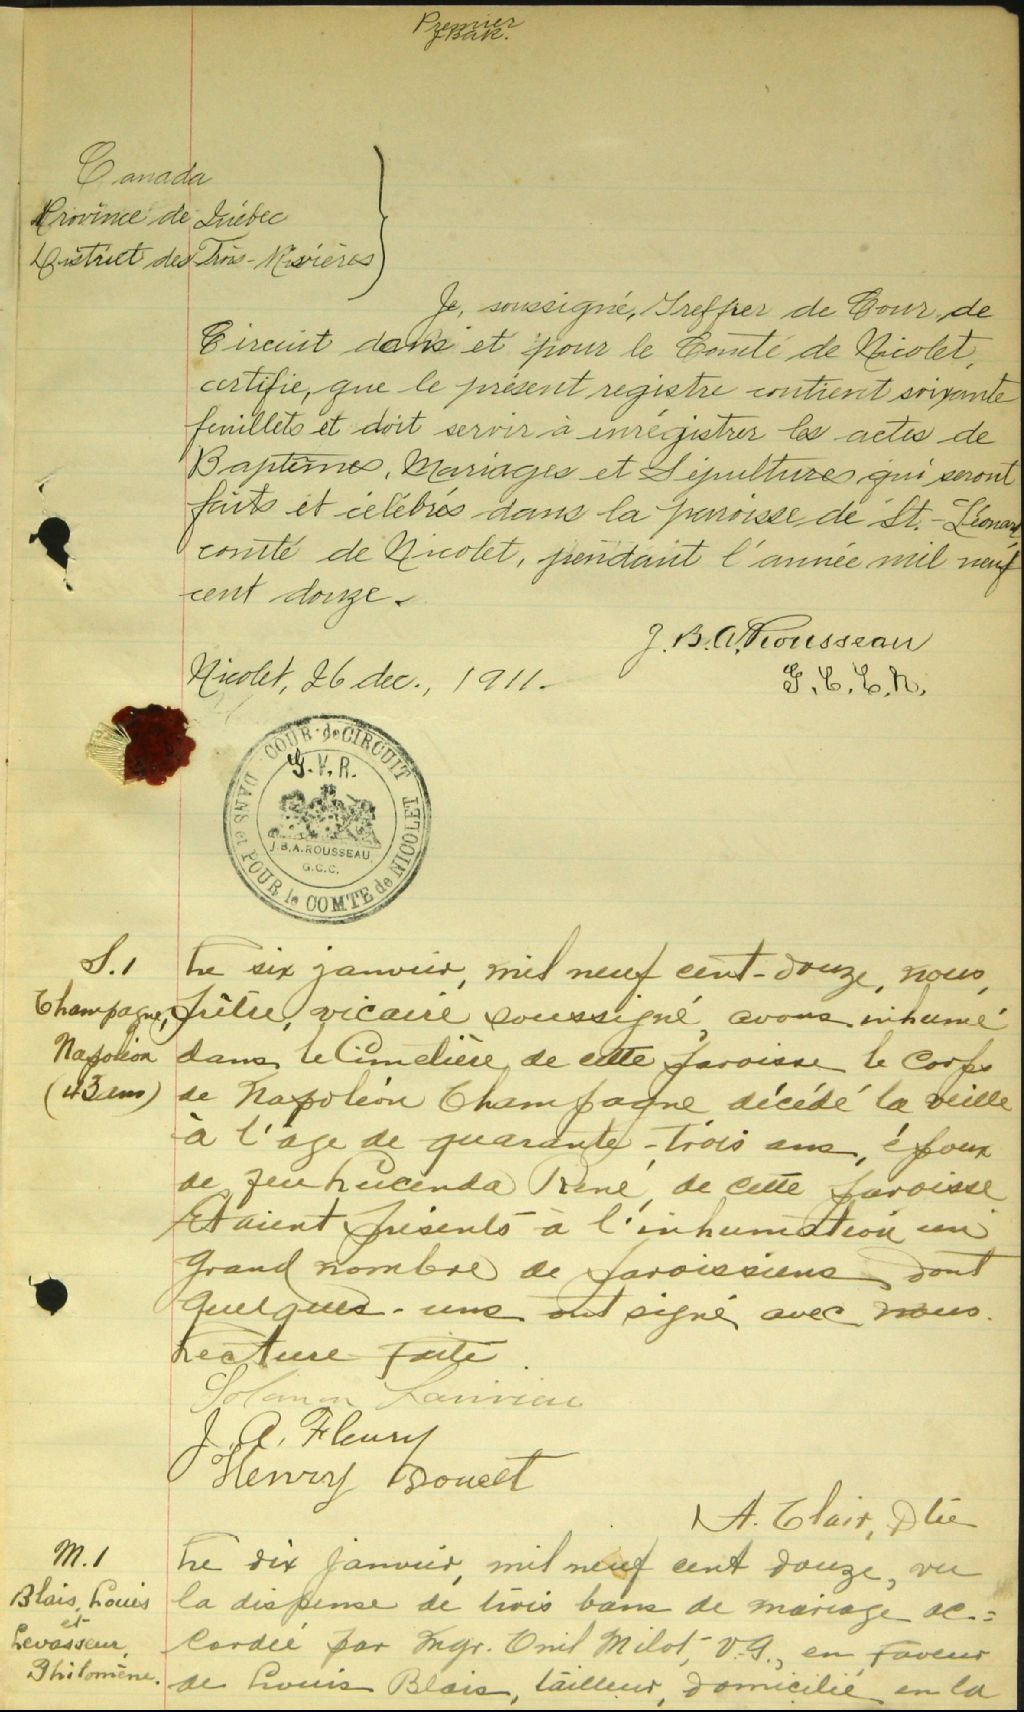 Premier
J.B.A.R.
Canada
Province de Québec
District des Trois-Rivières
Je, soussigné, Greffier de Cour de
Circuit dans et pour le Comté de Nicolet,
certifie, que le présent registre contient soixante
feuillets et doit servir à enrégistrer les actes de
Baptêmes, Mariages et Sépultures qui seront
faits et célébrés dans la paroisse de St.-Léonard
comté de Nicolet, pendant l'année mil neuf
cent douze.
J.B.A. Rousseau
G.C.C.N.
Nicolet, 26 dec., 1911.
COUR de CIRCUIT
DANS et POUR le COMTE de NICOLET
G.V.R.
J.B.A. ROUSSEAU
G.C.C.
S.1
Champagne,
Napoléon
(43 ans)
Le six janvier, mil neuf cent-douze, nous,
prêtre, vicaire soussigné, avons inhumé
dans le Cimetière de cette paroisse le corps
de Napoléon Champagne décédé la veille
à l'âge de quarante-trois ans, époux
de feu Lucenda René, de cette paroisse
Etaient présents à l'inhumation un
grand nombre de paroissiens dont
quelques-uns ont signé avec nous.
Lecture faite.
J.A. Fleury
Henry Doucet
A. Clair, Ptre
M.1
Blais, Louis
et
Levasseur,
Philomène.
Le dix janvier, mil neuf cent douze, vu
la dispense de trois bans de mariage ac-=
cordée par Mgr. Onil Milot, V.G., en faveur
de Louis Blais, tailleur, domicilié en la